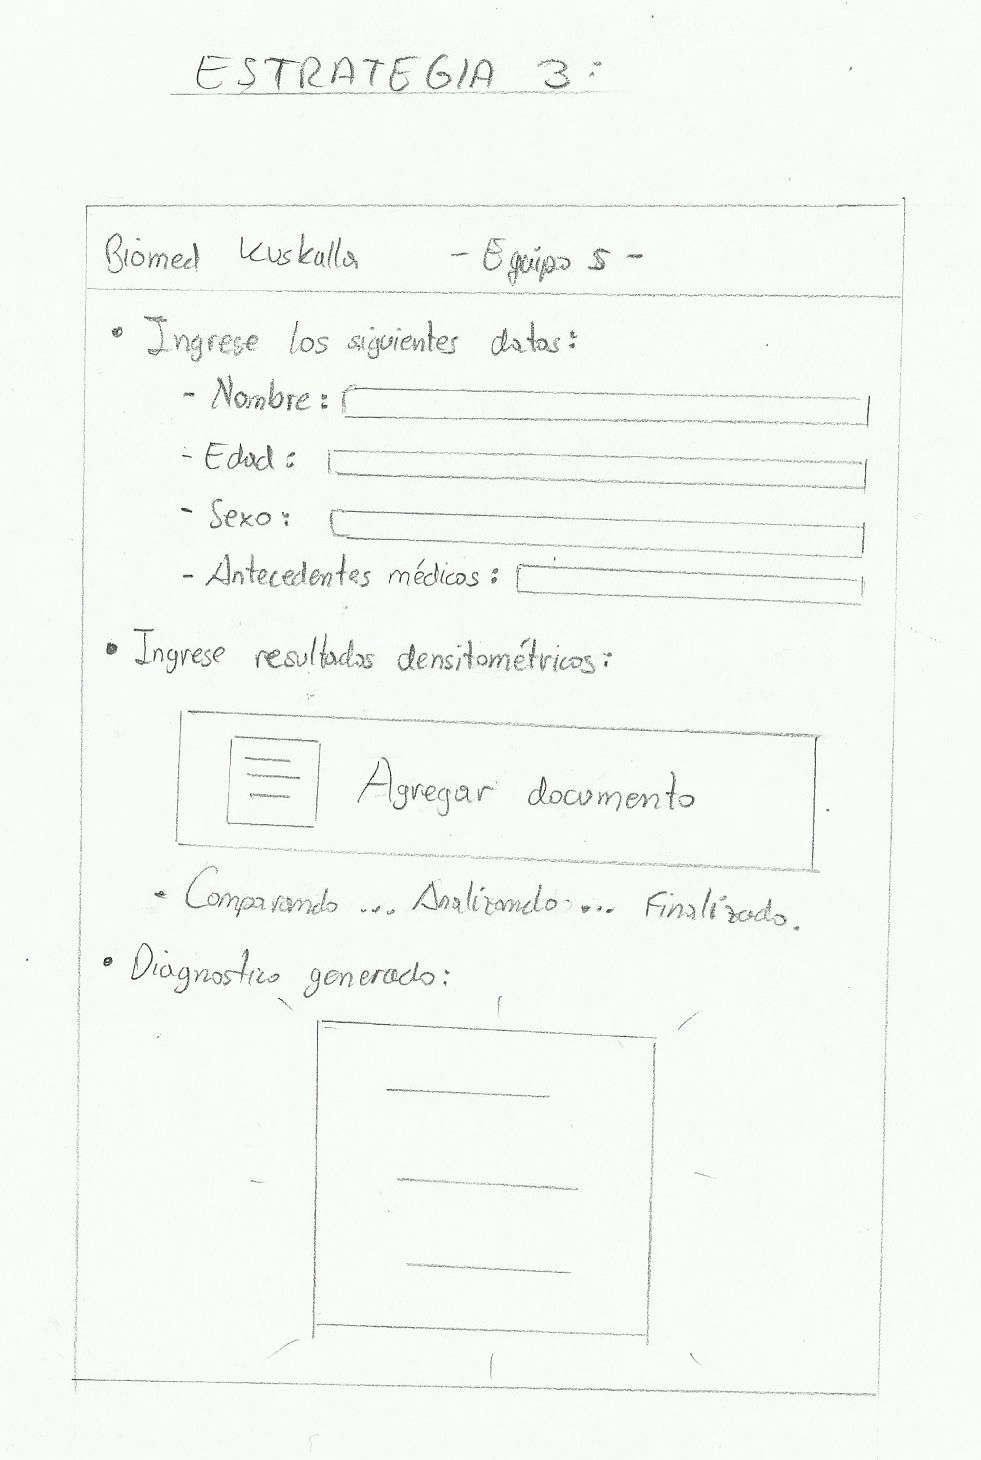 ESTRATEGIA 3:
Biomed Kuskalla - Equipo 5 -
• Ingrese los siguientes datos:
- Nombre:
- Edad:
- Sexo:
- Antecedentes médicos:
• Ingrese resultados densitométricos:
Agregar documento
- Comparando ... Analizando ... Finalizado.
• Diagnostico generado: